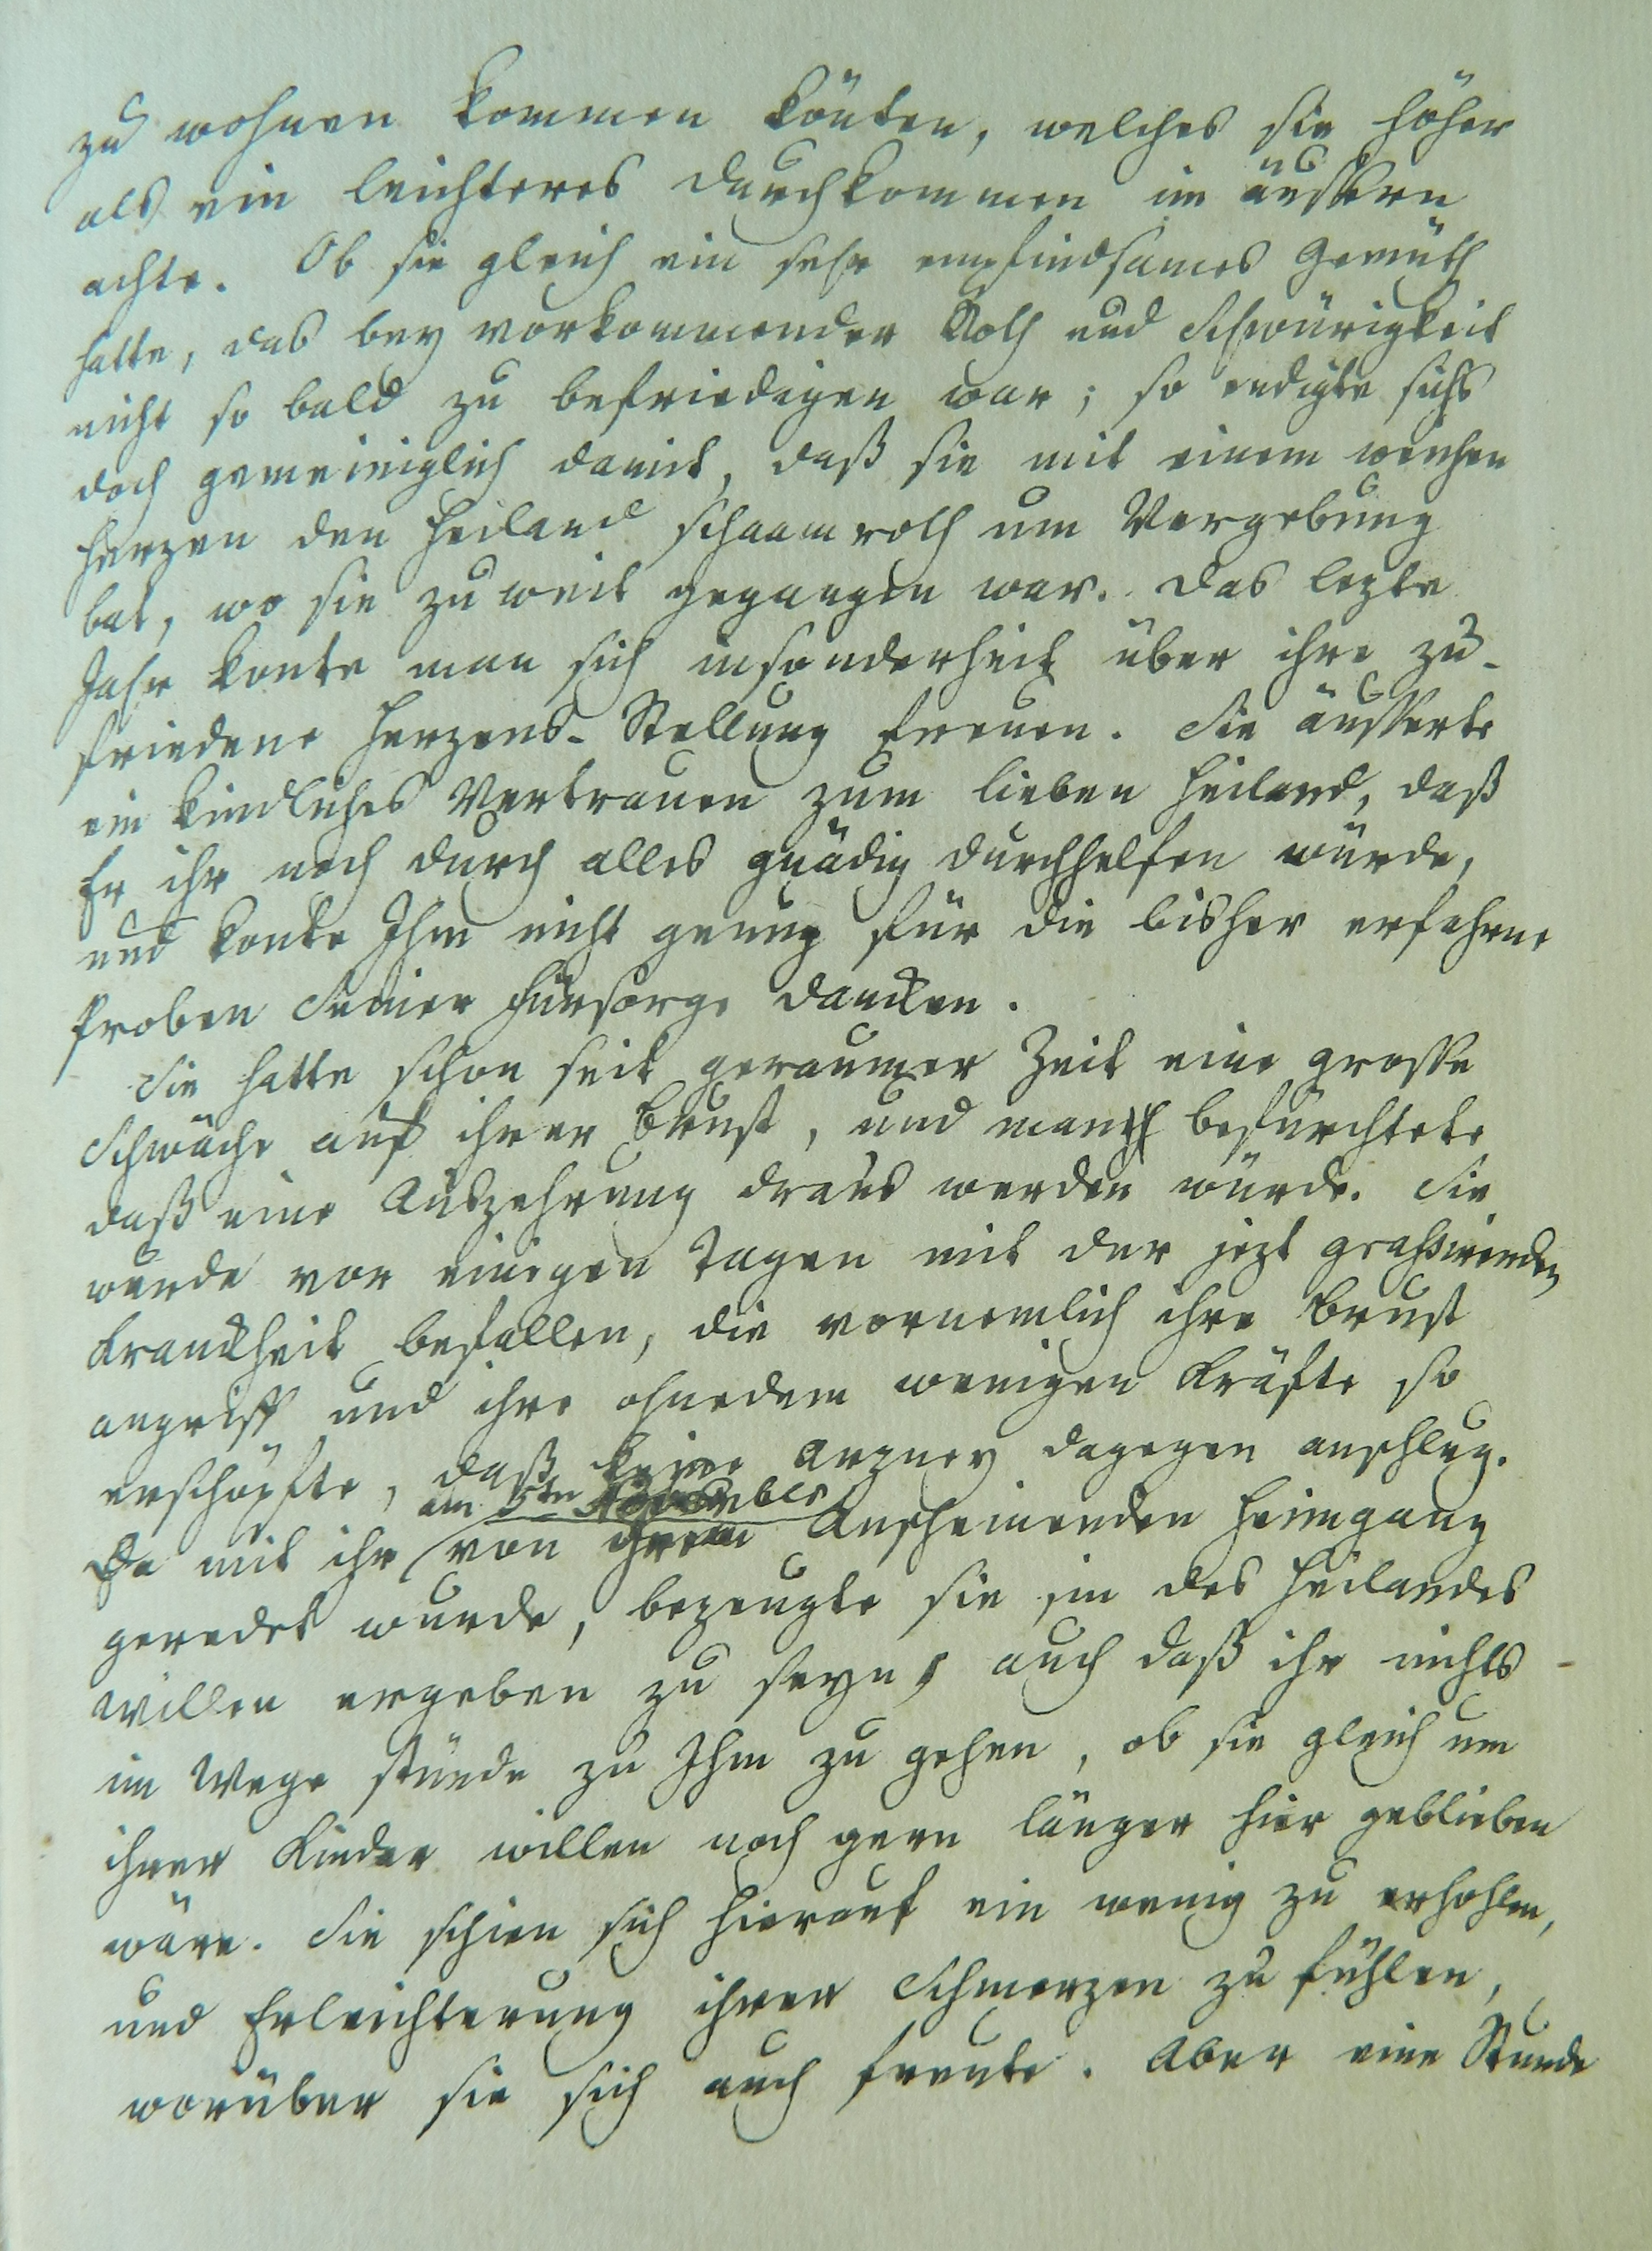 zu wohnen kommen könten, welches sie höher
als ein leichteres Durchkommen im äussern
achte. Ob sie gleich ein sehr empfindsames Gemüth
hatte, das bey vorkommender Noth und Schwürigkeit
nicht so bald zu befriedigen war; so endigte sichs
doch gemeiniglich damit, daß sie mit einem weichen
Herzen den Heiland schaamroth um Vergebung
bat, wo sie zu weit gegangen war. Das lezte
Jahr konte man sich insonderheit über ihre zu-
friedene Herzens-Stellung freuen. Sie äusserte
ein kindliches Vertrauen zum lieben Heiland, daß
Er ihr noch durch alles gnädig durchhelfen würde,
und konte Ihm nicht genug für die bisher erfahrne
Proben Seiner Fürsorge dancken.
Sie hatte schon seit geraumer Zeit eine grosse
Schwäche auf ihrer Brust, und man befürchtete
daß eine Auszehrung draus werden würde. Sie
wurde vor einigen Tagen mit der jezt grassirenden
Kranckheit befallen, die vornemlich ihre Brust
angriff und ihre ohnedem wenigen Kräfte so
erschöpfte, daß keine Arzney dagegen anschlug.
am 5ten November
Da mit ihr von ihrem anscheinenden Heimgang
geredet wurde, bezeugte sie in des Heilandes
Willen ergeben zu seyn, auch daß ihr nichts
im Wege stünde zu Ihm zu gehen, ob sie gleich um
ihrer Kinder willen noch gern länger hier geblieben
wäre. Sie schien sich hierauf ein wenig zu erhohlen,
und Erleichterung ihrer Schmerzen zu fühlen,
worüber sie sich auch freute. Aber eine Stunde